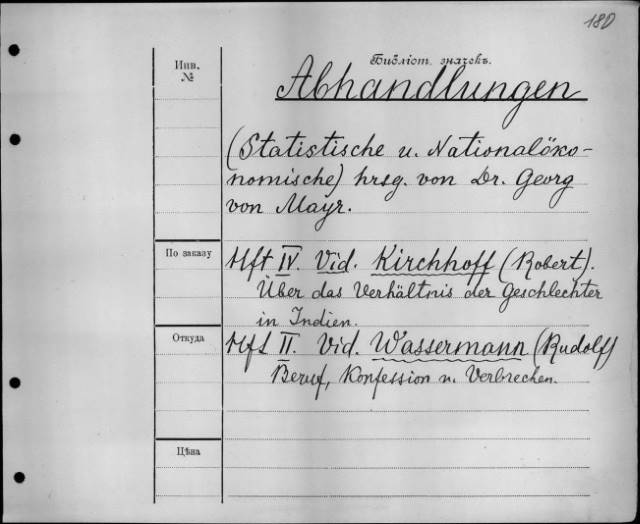 180
Инв.
№
Библіот. значекъ.
Abhandlungen
(Statistische u. Nationalöko-
nomische) hrsg. von Dr. Georg
von Mayr.
По заказу
Hft IV. Vid. Kirchhoff (Robert).
Über das Verhältnis der Geschlechter
in Indien.
Откуда
Hft II. Vid. Wassermann (Rudolf)
Beruf, Konfession u. Verbrechen.
Цѣна